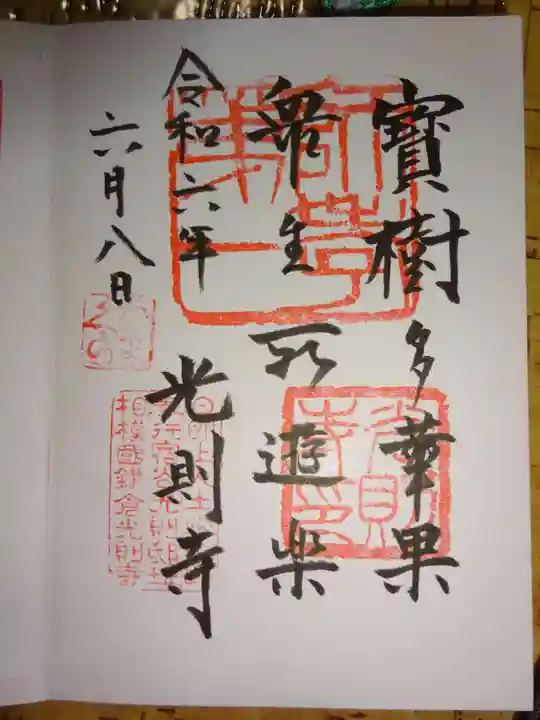 寶樹多華果
衆生所遊樂
令和六年
六月八日
光則寺
光則寺印
相模國鎌倉光則寺